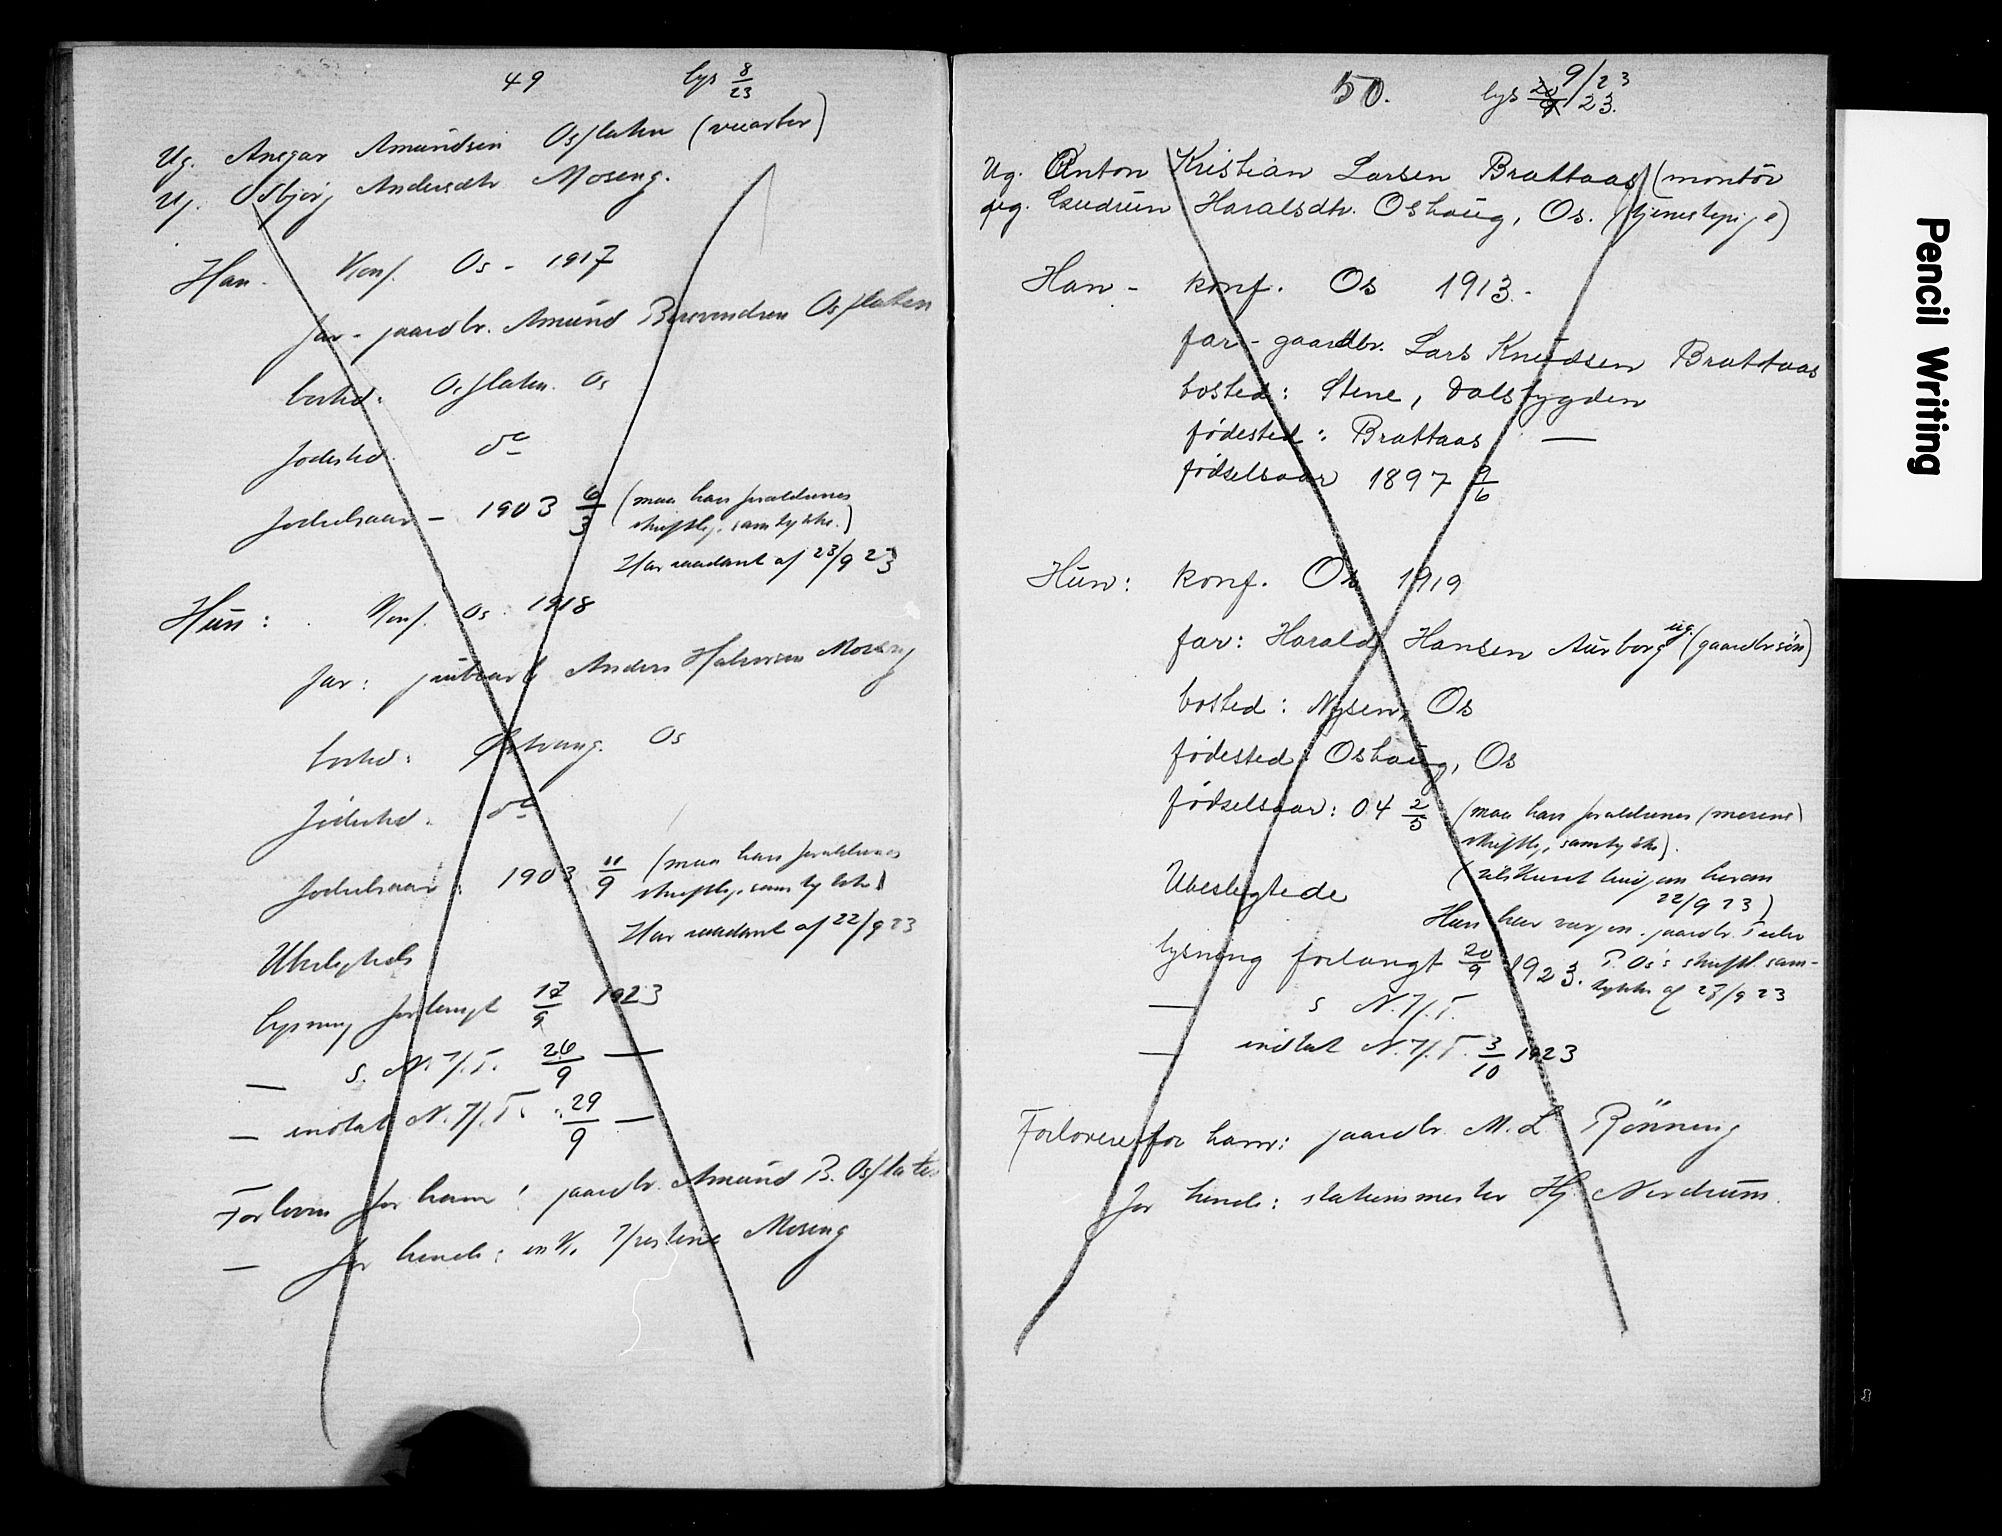 49 lys 8/23
Ug. Ansgar Amundsen Osflaten
Ug. Asbjørg Andersdtr Moseng.
Han - Konf. Os - 1917
far - gaardbr. Amund Osflaten
bosted: Osflaten. Os
fødested. do
fødselsaar - 1903 6/3 (maa have forældrenes
skriftlig samtykke.)
Har saadant af 23/9 23
Hun: Konf. Os 1918
far: Anders Halvorsen Moseng
bosted: Os
fødested. do
fødselsaar: 1903 11/9 (maa have forældrenes
skriftlig samtykke)
Har saadant af 22/9 23
Ubeslegtede
lysning forlangt 17/9 1923
— s. N.K.T. 26/9 —
— indtat N.K.T. 29/9 —
Forlover for ham: gaardbr. Amund B. Osflaten
— for hende: Moseng
50. lys 20/9 9/23 23.
Ug. Anton Kristian Larsen Brattaas (montör
pig. Gudrun Haralsdtr. Oshaug, Os. (tjenestepige)
Han - konf. Os 1913 -
far - gaardbr. Lars Knudsen Brattaas
bosted: Stene, Dalsbygden
fødested: Brattaas —
fødselsaar 1897 9/6
Hun: konf. Os 1919
far: Harald Hansen Aurborg ug. (gaardbrsön)
bosted: Nysen, Os
fødested: Oshaug, Os
fødselsaar: 04 2/5 (maa have forældrenes (morens)
skriftlig samtykke).
22/9 23)
Ubeslegtede
Hun har gaardbr.
lysning forlangt 20/9 1923. P. Os's skriftl. sam-
tykke af 23/9 23
— s N.K.T.
— indtat N.K.T. 3/10 1923
Forlovere for ham: gaardbr. M. L. Rönning
for hende: stationsmester Hj. Nordrum.
Pencil Writing